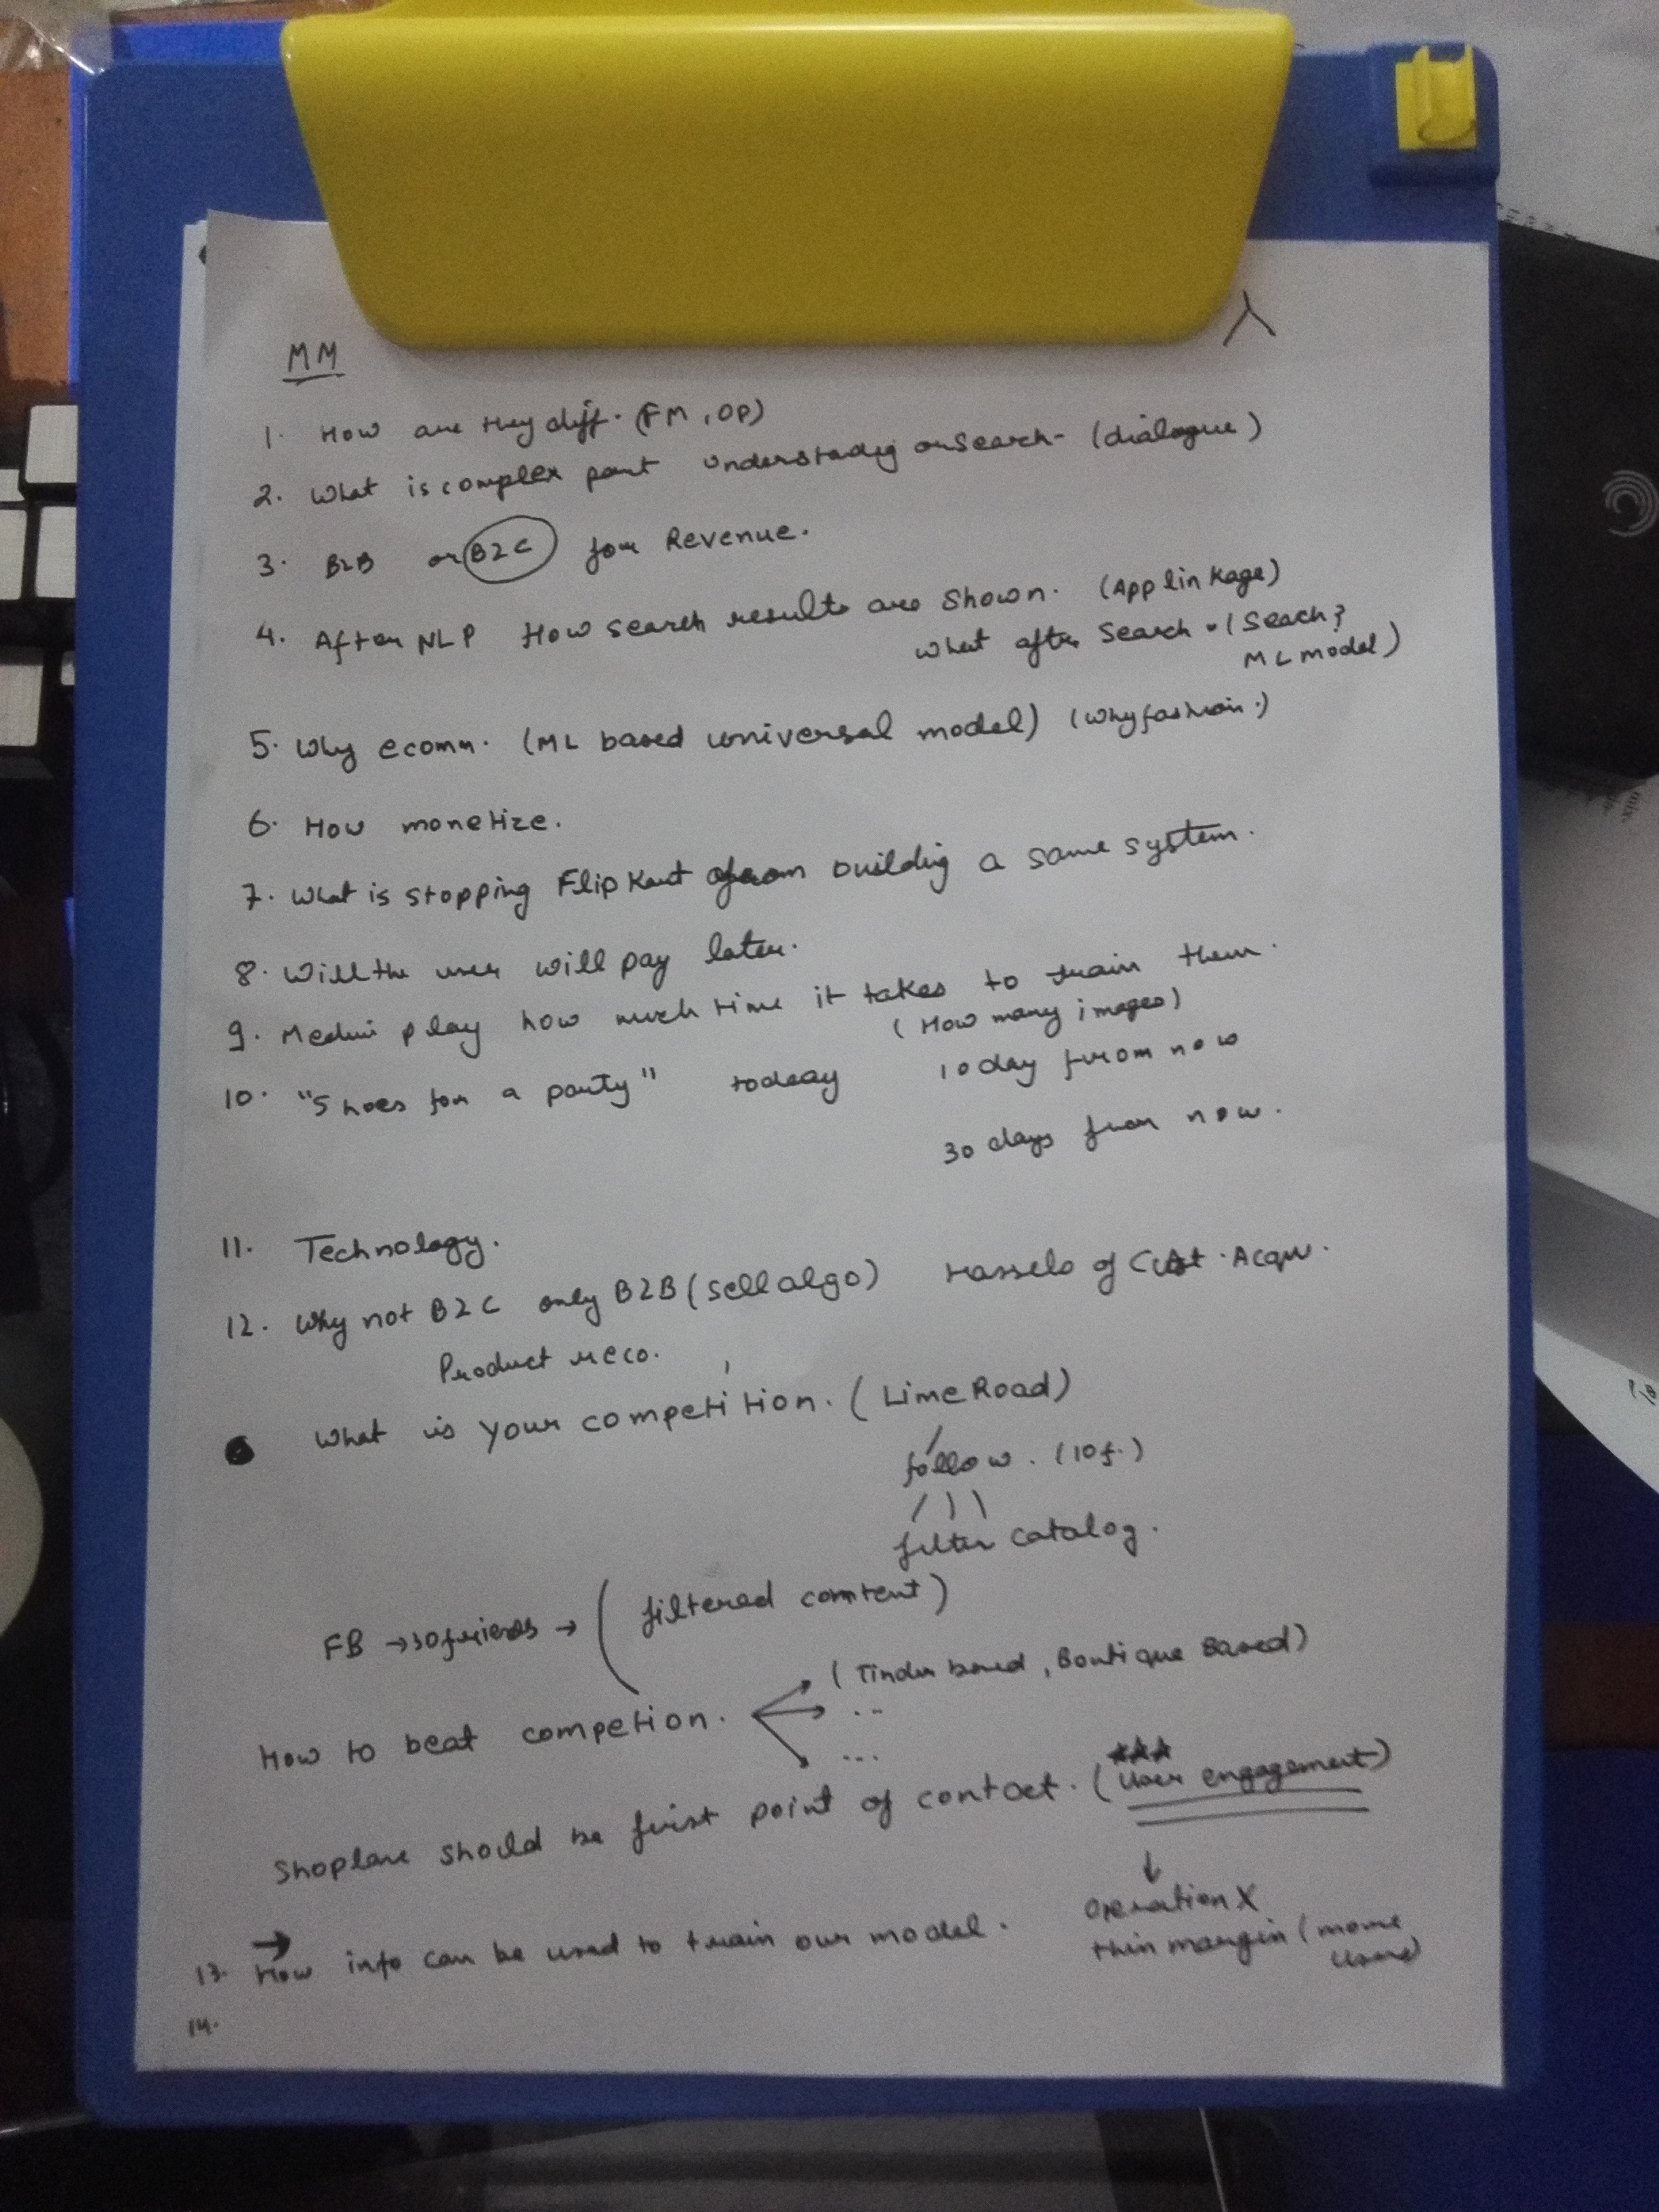 MM
1. How are they diff. (FM, OP)
2. What is complex part understadig or Search - (dialogue)
3. B2B or B2C for Revenue.
4. After NLP How search results are shown. (App linkage)
What after Search . (Seach?
ML model)
5. Why ecomm. (ML based universal model) (why fashion.)
6. How monetize.
7. What is stopping Flipkart from building a same system.
8. Will the user will pay later.
9. play how much time it takes to train them.
(How many images)
10. "Shoes for a party" today 10 day from now
30 days from now.
11. Technology.
12. Why not B2C only B2B (sell algo) Hassels of Cust. Acqu.
Product reco.
What is your competition. (LimeRoad)
follow. (10 f.)
filter catalog.
FB → 30 friends → (filtered content)
How to beat competion. (Tinder based, Boutique Based)
..
...
Shoplane should be first point of contact. (User engagement)
Operation X
thin margin (more
users)
13. → How info can be used to train our model.
14.